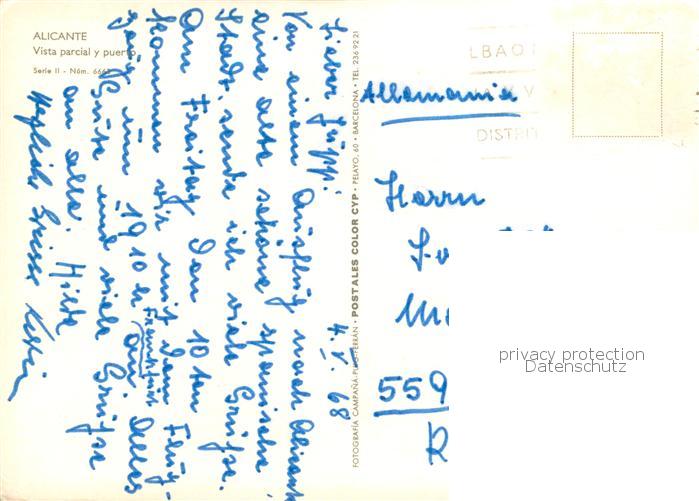 ALICANTE
Vista parcial y puerto
Serie II - Núm. 666
FOTOGRAFÍA CAMPAÑA-PUIG-FERRÁN • POSTALES COLOR CYP • PELAYO, 60 • BARCELONA • TEL. 236 92 21
4. V. 68
Lieber Jüppi.
Von einem Ausflug nach Alicante
eine alte schöne spanische
Stadt, sende ich viele Grüsse.
Am Freitag den 10 ten
kommen wir mit dem Flug-
zeug um 19 10 h Frankfurt an. Alles
Gute und viele Grüsse
an alle. Hilde
Herzliche Grüsse
LBAO
DISTRI
Allemania
Herrn
559
privacy protection
Datenschutz